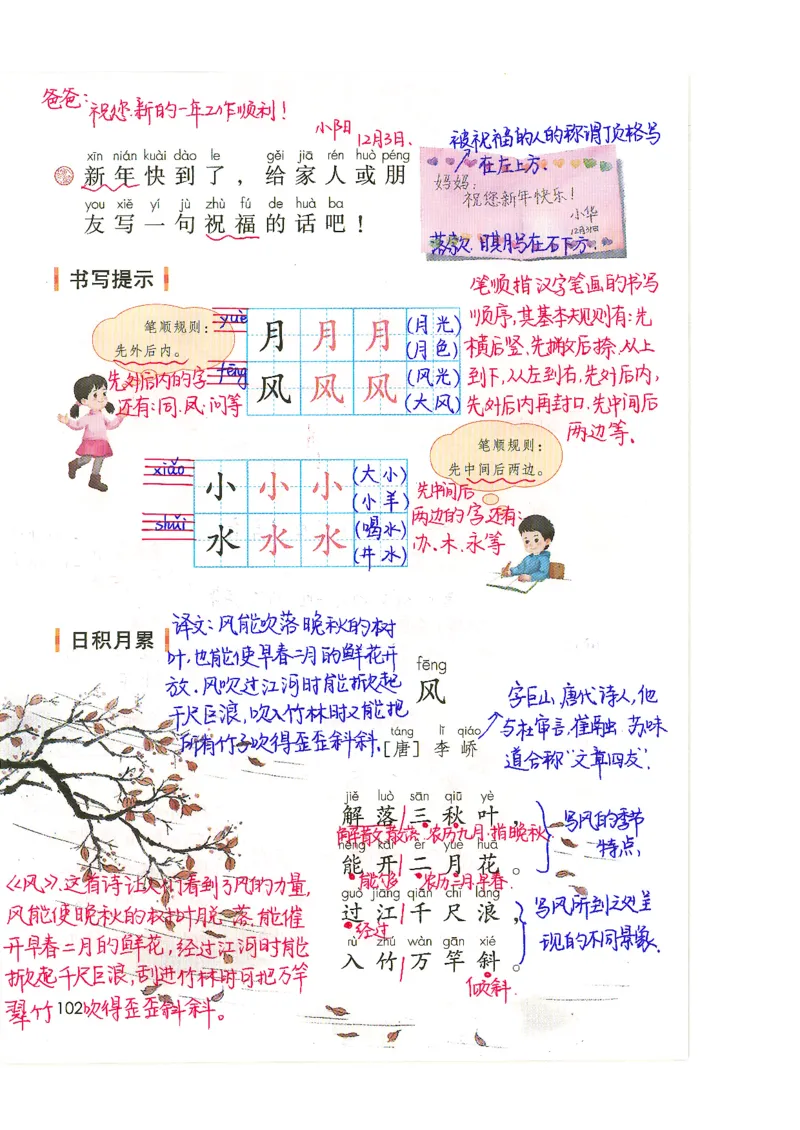 爸爸:
祝您新的一年工作顺利!
小阳
12月3日、
被祝福的人的称谓顶格写
在左上方.
xīn nián kuài dào le gěi jiā rén huò péng
新年快到了，给家人或朋
you xiě yí jù zhù fú de huà ba
友写一句祝福的话吧！
妈妈：
祝您新年快乐！
小华
12月31日
落款.日期写在右下方.
书写提示
笔顺规则：
先外后内。
先外后内的字
还有:同.风.问等
yuè
月 月 月 (月光)
(月色)
fēng
风 风 风 (风光)
(大风)
笔顺指汉字笔画的书写
顺序,其基本规则有:先
横后竖.先撇后捺.从上
到下,从左到右.先外后内,
先外后内再封口.先中间后
两边等.
笔顺规则：
先中间后两边。
xiǎo
小 小 小 (大小)
(小羊)
shuǐ
水 水 水 (喝水)
(井水)
先中间后
两边的字还有:
办.木.永等
日积月累
译文:风能吹落晚秋的树
叶,也能使早春二月的鲜花开
放.风吹过江河时能掀起
千尺巨浪,吹入竹林时又能把
所有竹子吹得歪歪斜斜.
fēng
风
táng lǐ qiáo
[唐] 李峤
字巨山,唐代诗人,他
与杜审言,崔融 苏味
道合称"文章四友".
jiě luò sān qiū yè
解落三秋叶，
解散 散落. 农历九月.指晚秋
néng kāi èr yuè huā
能开二月花。
能够 农历二月.早春.
写风的季节
特点,
guò jiāng qiān chǐ làng
过江千尺浪，
经过
rù zhú wàn gān xié
入竹万竿斜。
倾斜.
写风所到之处呈
现的不同景象.
《风》.这首诗让人们看到了风的力量,
风能使晚秋的树叶脱落,能催
开早春二月的鲜花,经过江河时能
掀起千尺巨浪,刮进竹林时可把万竿
翠竹吹得歪歪斜斜。
102